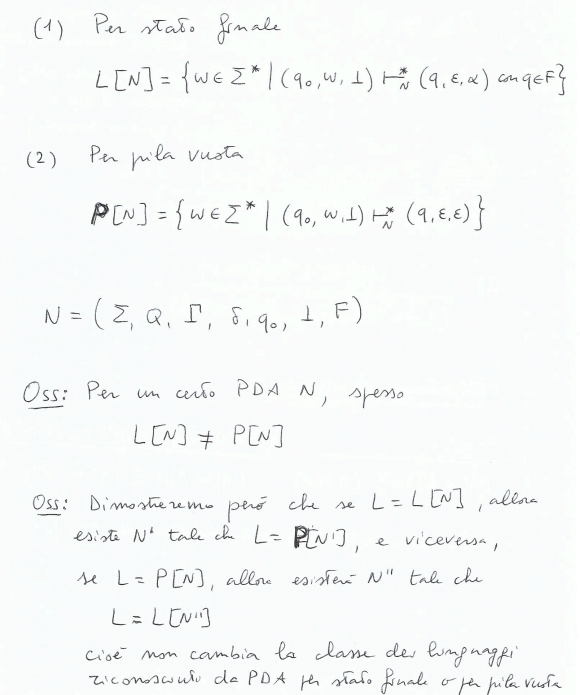 (1) Per stato finale
L[N] = {w ∈ Σ* | (q₀, w, ⊥) ⊢*_N (q, ε, α) con q ∈ F}
(2) Per pila vuota
P[N] = {w ∈ Σ* | (q₀, w, ⊥) ⊢*_N (q, ε, ε)}
N = (Σ, Q, Γ, δ, q₀, ⊥, F)
Oss: Per un certo PDA N, spesso
L[N] ≠ P[N]
Oss: Dimostreremo però che se L = L[N], allora
esiste N' tale che L = P[N'], e viceversa,
se L = P[N], allora esisterà N'' tale che
L = L[N'']
cioè non cambia la classe dei linguaggi
riconosciuto da PDA per stato finale o per pila vuota